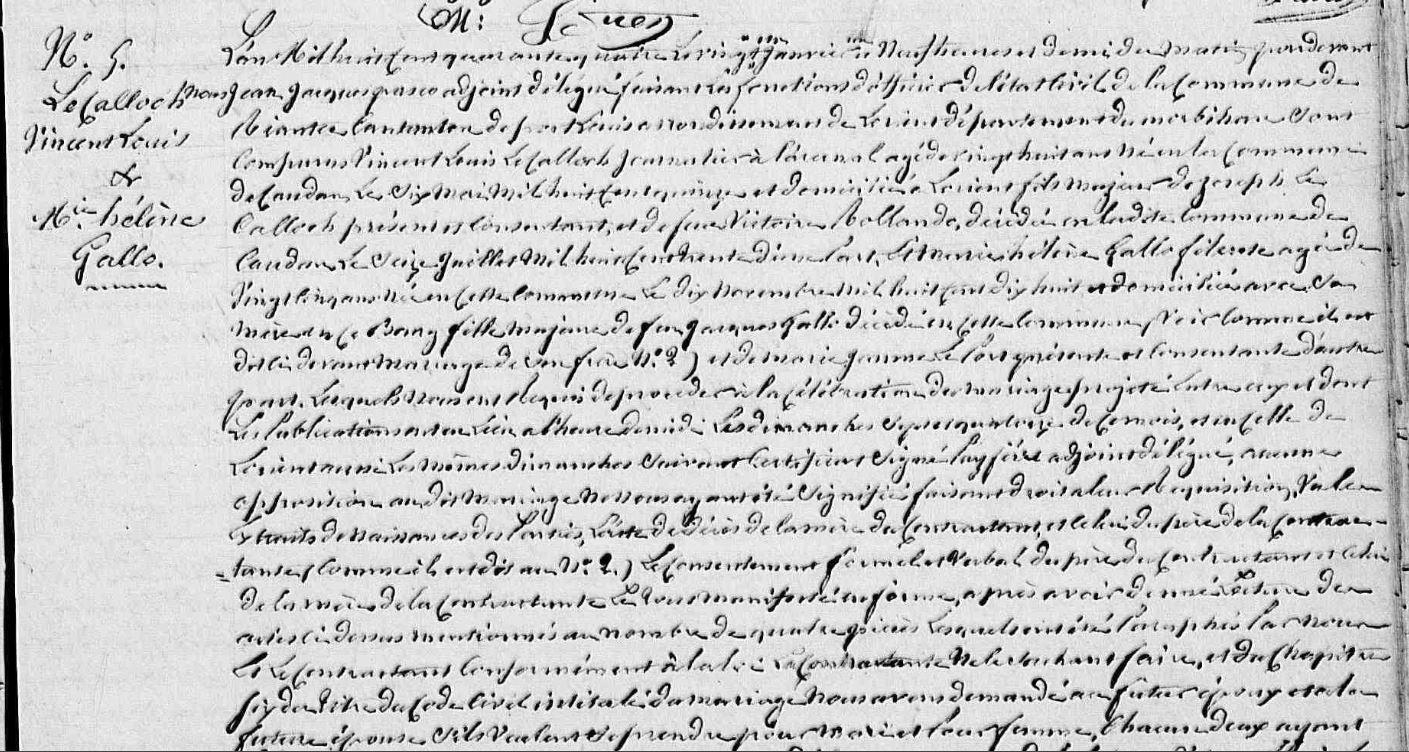 N° 5.
Le Calloch
Vincent Louis
&
Mie hélène
Gallo.
L'an Mil huit Cent quarante quatre le vingt Janvier à Neuf heures et demi du matin, pardevant
nous Jean Jacques adjoint délégué faisant les fonctions d'officier de l'état Civil de la Commune de
Riantec Canton de port Louis arrondissement de Lorient département du morbihan Sont
Comparus Vincent Louis Le Calloch Journalier à l'arsenal agé de vingt huit ans Né en la Commune
de Caudan Le Six Mai Mil huit Cent quinze et domicilié à Lorient fils Majeur de Joseph Le
Calloch présent et Consentant, et de feue Victoire Rollando, décédée en ladite Commune de
Caudan Le Seize Juillet Mil huit Cent trente d'une part, Et Marie hélène Gallo fileuse agée de
Vingt Cinq ans Née en Cette Commune Le dix Novembre Mil huit Cent dix huit et domiciliée avec Sa
mère en Ce Bourg fille majeure de feu Jacques Gallo décédé en Cette Commune, (Voir Comme il est
dit Ci devant Mariage de Son frère N°. 2) et de marie Jeanne Le Port présente et Consentante d'autre
part. Lesquels Nous ont Requis de procéder à la Célébration du Mariage projeté Entre eux et dont
Les Publications ont eu Lieu à l'heure de midi Les dimanches Sept et quatorze de Ce mois, et en Celle de
Lorient aussi Les mêmes dimanches Suivant Certificat Signé adjoint délégué, aucune
opposition audit Mariage Ne Nous ayant été Signifiée faisant droit à leur Réquisition, Vu les
Extraits de Naissances des Parties, L'acte de décès de la mère du Contractant, et Celui du père de la Contrac-
=tante, (Comme il est dit au N°. 2.) Le Consentement formel et Verbal du père du Contractant et Celui
de la mère de la Contractante Le tous manifesté en forme, après avoir donné Lecture des
actes Ci dessus mentionnés au nombre de quatre pièces Lesquels ont été Paraphés Par Nous
Et Le Contractant Conformément à la loi La Contractante Ne le Sachant faire, et du Chapitre
Six du Titre du Code Civil intitulé du mariage Nous avons demandé au futur époux et à la
future épouse S'ils Veulent Se prendre pour Mari et Pour femme, Chacun d'eux ayant